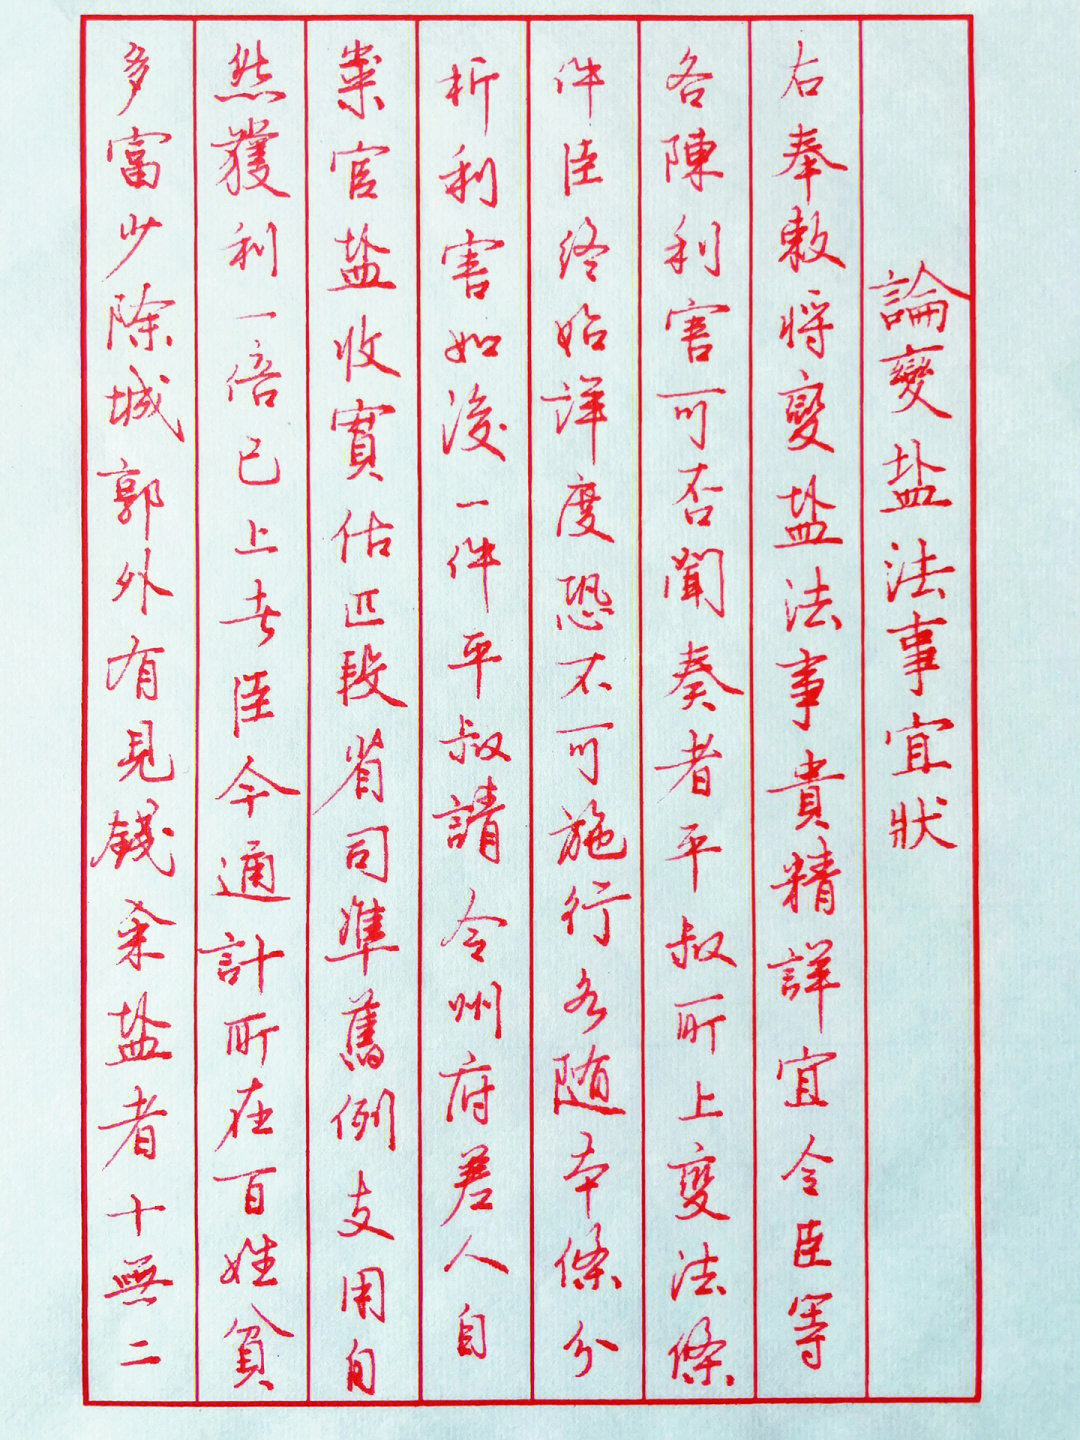 論變盐法事宜狀
右奉敕將變盐法事貴精詳宜令臣等
各陳利害可否聞奏者平叔所上變法條
件臣终始详度恐不可施行各随本條分
析利害如後一件平叔請令州府差人自
粜官盐收實估匹段省司準舊例支用自
然獲利一倍已上者臣今通計所在百姓貧
多富少除城郭外有見錢籴盐者十無二